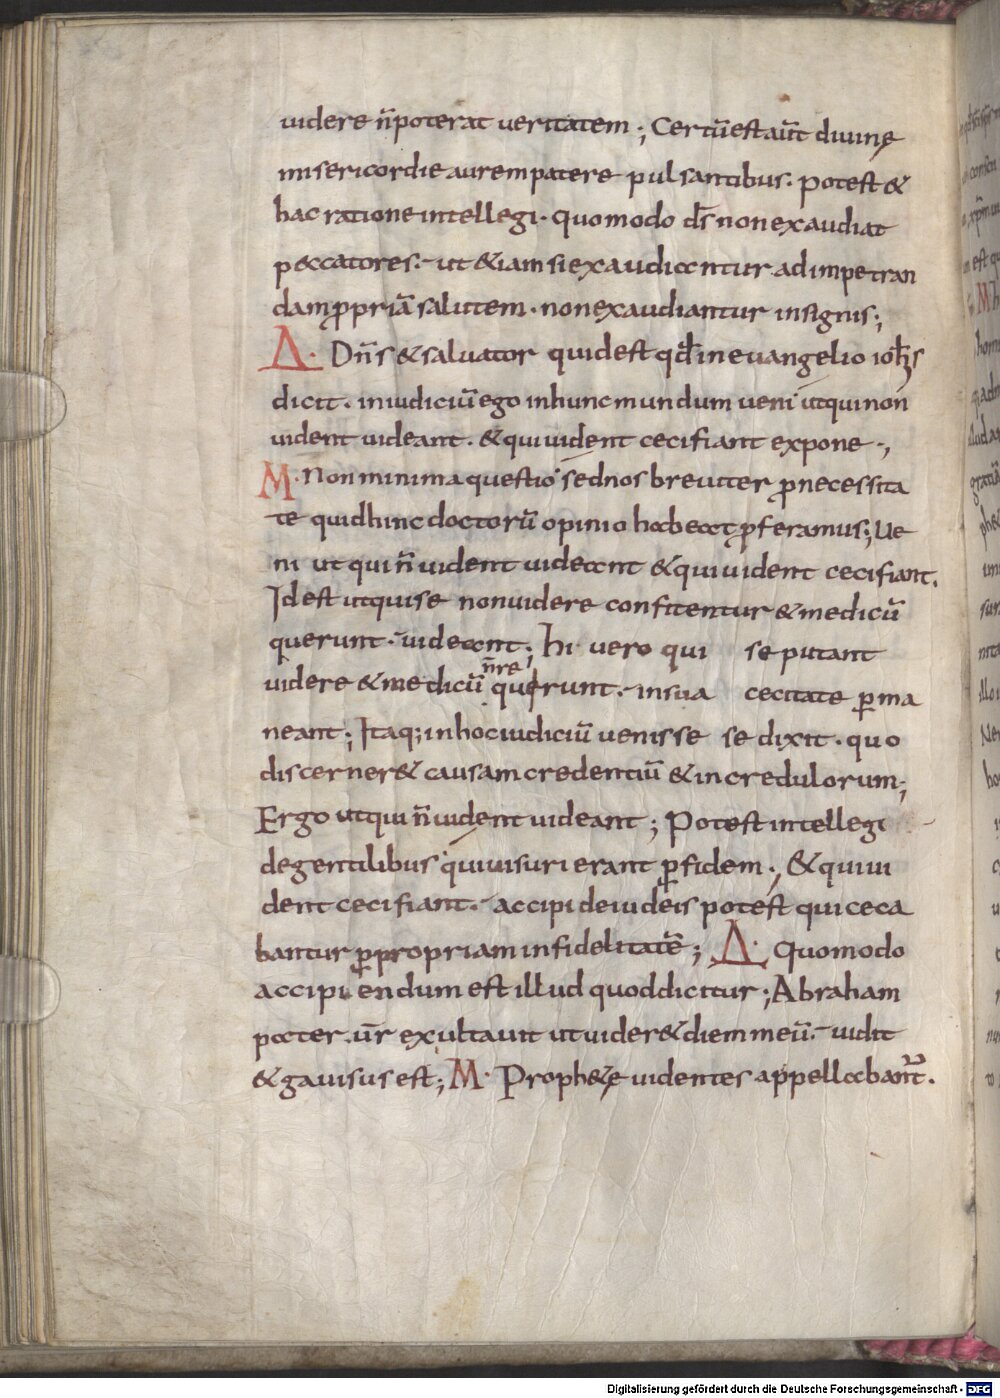 uidere n̄ poterat ueritatem; Certū est aūt diuinę
misericordie aurem patere pulsantibus. potest &
hac ratione intellegi. quomodo d̄s non exaudiat
p&catores. ut &iam si exaudiantur ad impetran
dam ꝓpriā salutem. non exaudiantur in signis;
Δ. Dn̄s & saluator quid est qđ in euangelio ioħs
dicit. in iudiciū ego in hunc mundum ueni ut qui non
uident uideant. & qui uident ceci fiant expone.,
M. Non minima questio sed nos breuiter ꝓ necessita
te quid hinc doctorū opinio habeat ꝓferamus; Ue
ni ut qui n̄ uident uideant & qui uident ceci fiant.
Id est ut qui se non uidere confitentur & medicū
querunt. uideant. Hi uero qui se putant
uidere & medicū querunt. in sua cecitate ꝑma
n̄ re
neant; Itaq; in hoc iudiciū uenisse se dixit. quo
discerner& causam credentiū & incredulorum;
Ergo ut qui n̄ uident uideant; Potest intellegi
de gentilibus qui uisuri erant ꝑ fidem; & qui ui
dent ceci fiant. accipi de iudeis potest qui ceca
bantur ꝑ propriam infidelitatē; Δ. Quomodo
accipiendum est illud quod dicitur; Abraham
pater ur̄ exultauit ut uider& diem meū. uidit
& gauisus est; M. Proph&ę uidentes appellabant̄.
Digitalisierung gefördert durch die Deutsche Forschungsgemeinschaft - DFG